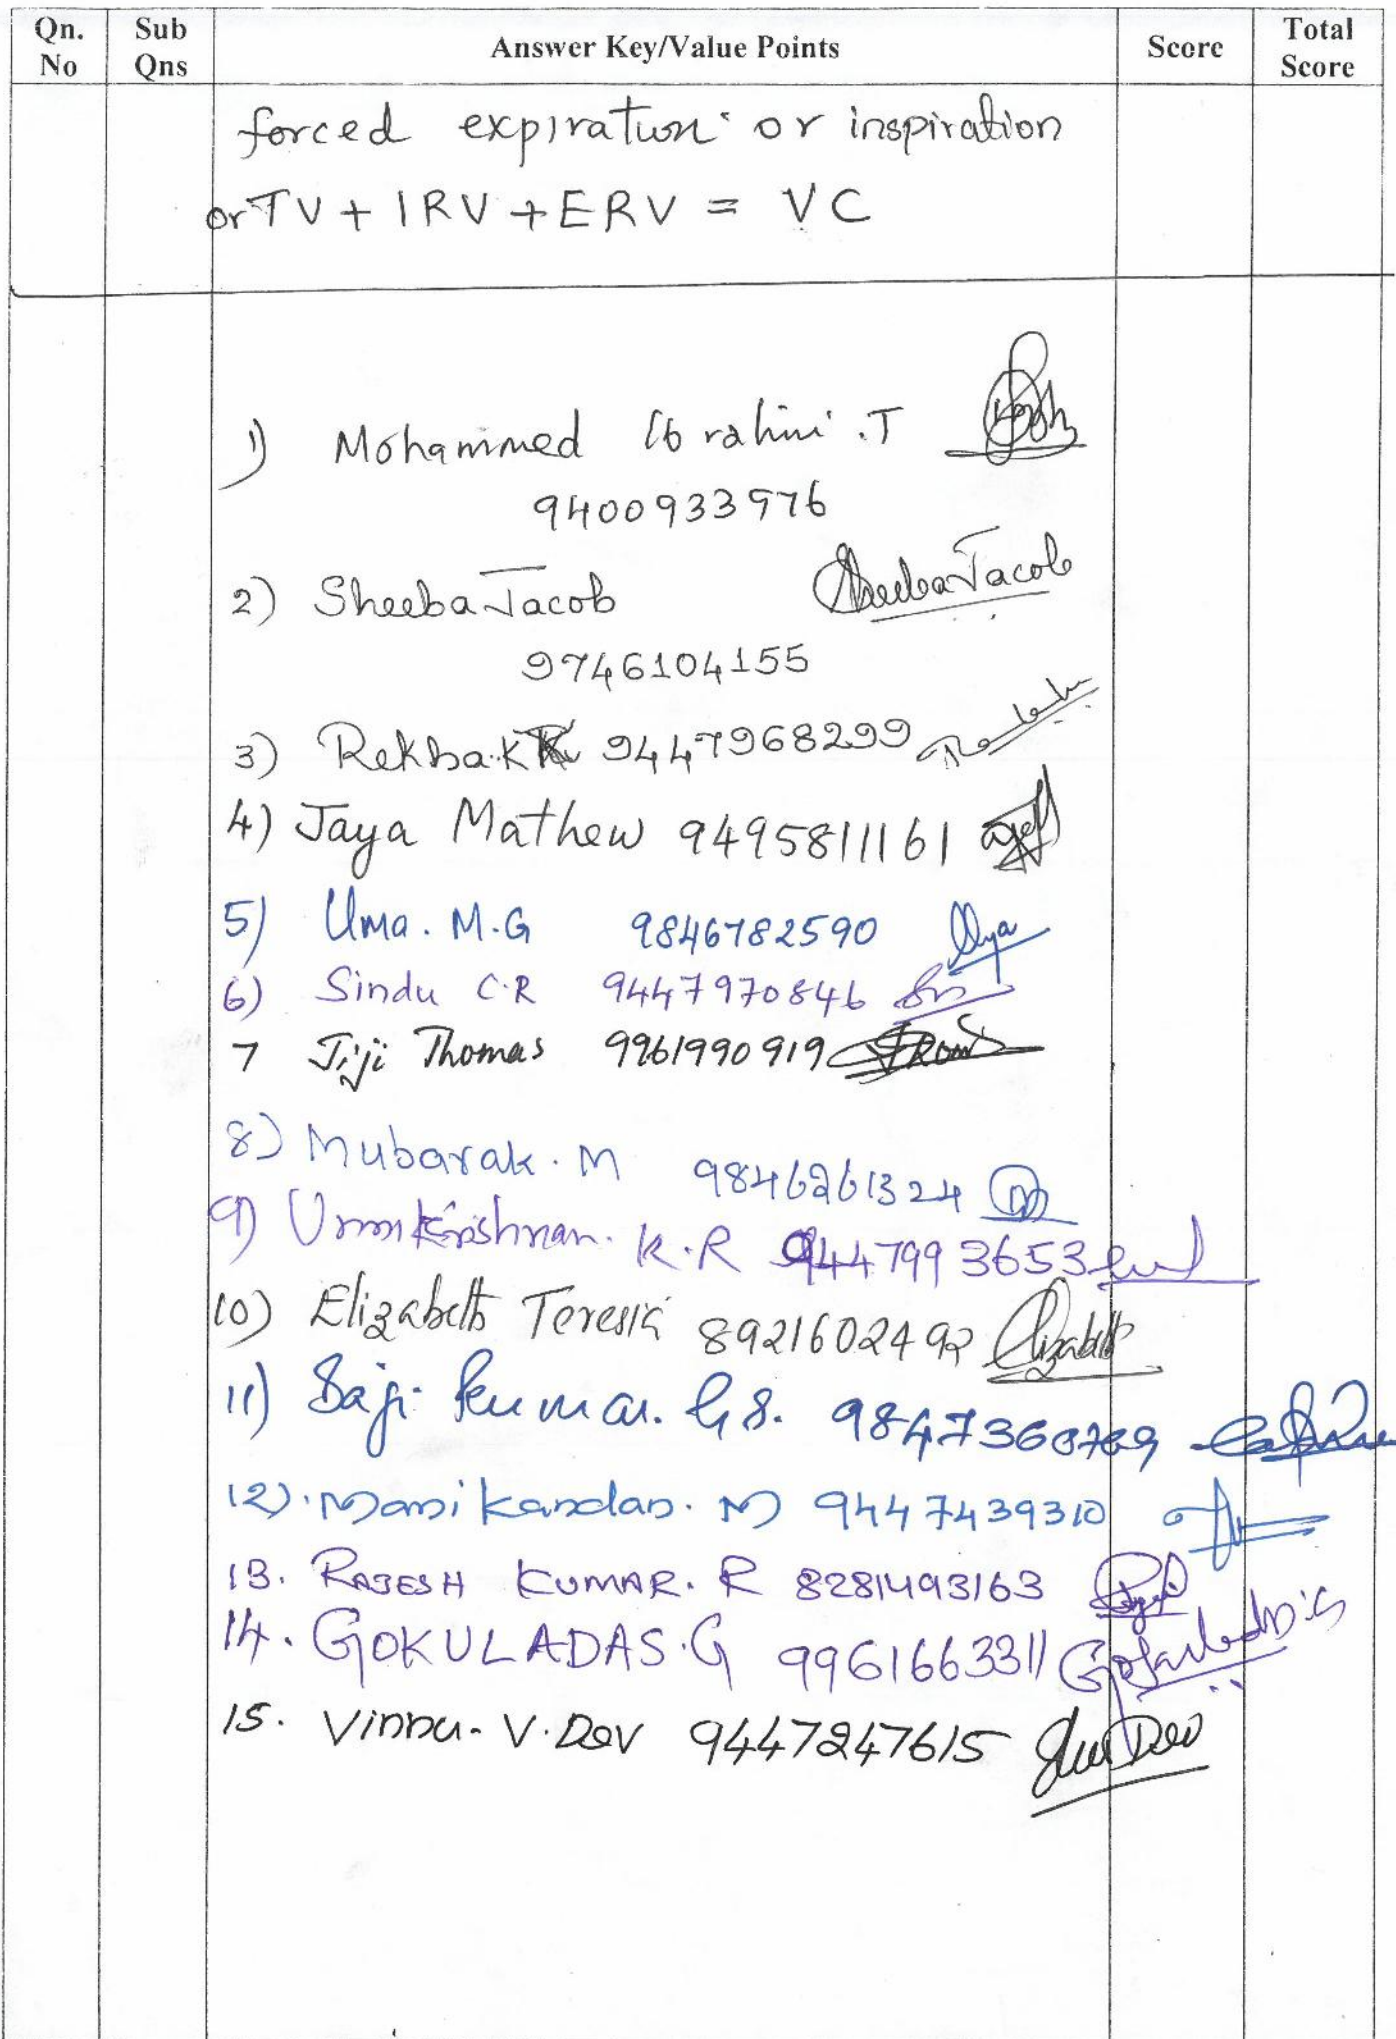 Qn. No Sub Qns Answer Key/Value Points Score Total Score
forced expiration or inspiration
or TV + IRV + ERV = VC
1) Mohammed Ibrahim .T
9400933976
2) Sheeba Jacob Sheeba Jacob
9746104155
3) Rekha.K 9447968299
4) Jaya Mathew 9495811161
5) Uma. M.G 9846782590
6) Sindu C.R 9447970846
7 Jiji Thomas 9961990919
8) Mubarak. M 9846261324
9) Unnikrishnan. K.R 9447993653
10) Elizabeth Teresia 8921602492 Elizabeth
11) Saji Kumar. G S. 9847360769
12). Manikandan. M 9447439310
13. RAJESH KUMAR. R 8281493163
14. GOKULADAS.G 9961663311 Gokuladas.G
15. Vinnu. V. Dev 9447247615